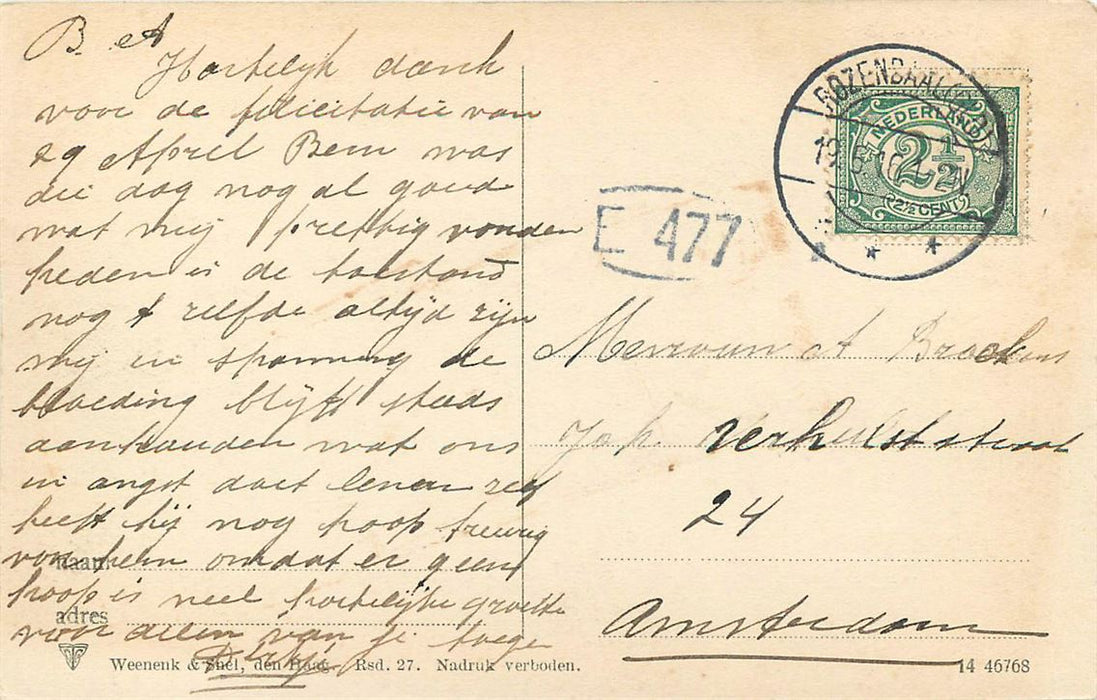 B. A
Hartelijk dank
voor de felicitatie van
29 April Bem was
die dag nog al goed
wat mij prettig vonden
heden is de toestand
nog t zelfde altijd zijn
mij in spanning de
bloeding blijft steeds
aanhouden wat ons
in angst doet leven zeg
heeft hij nog hoop treurig
voor hem omdat er geen
hoop is veel hartelijke groette
voor allen van je toege
naam
adres
Weenenk & Snel, den Haag. Rsd. 27. Nadruk verboden.
14 46768
ROZENDAAL
NEDERLAND
2½
2½ CENT
E 477
Mevrouw A Brockens
Joh. Verhulststraat
24
Amsterdam